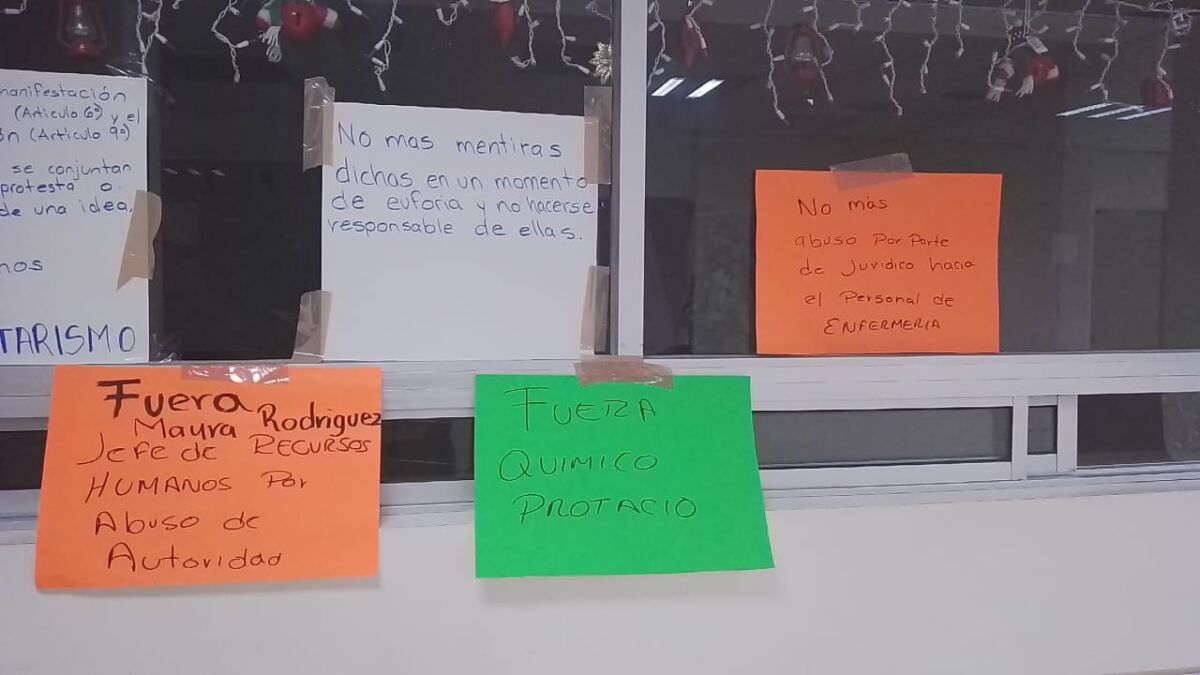 manifestación
(Artículo 6º) y el
ón (Artículo 9º)
se conjuntan
protesta o
de una idea.
nos
TARISMO
No mas mentiras
dichas en un momento
de euforia y no hacerse
responsable de ellas.
No màs
abuso Por Parte
de Juridico hacia
el Personal de
ENFERMERIA
Fuera
Mayra Rodriguez
Jefe de RECURSOS
HUMANOS Por
Abuso de
Autoridad
FUERA
QUIMICO
PROTACIO